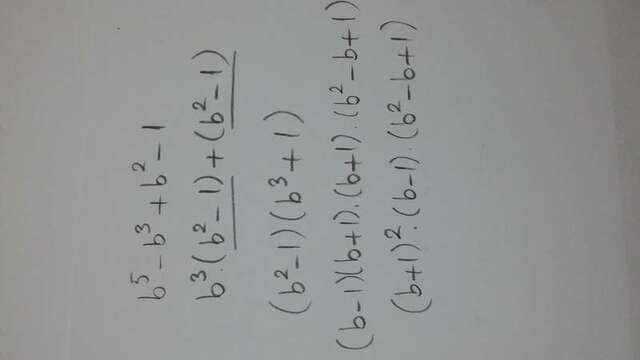 b⁵ - b³ + b² - 1
b³.(b² - 1) + (b² - 1)
(b² - 1)(b³ + 1)
(b - 1)(b + 1).(b + 1).(b² - b + 1)
(b + 1)².(b - 1).(b² - b + 1)